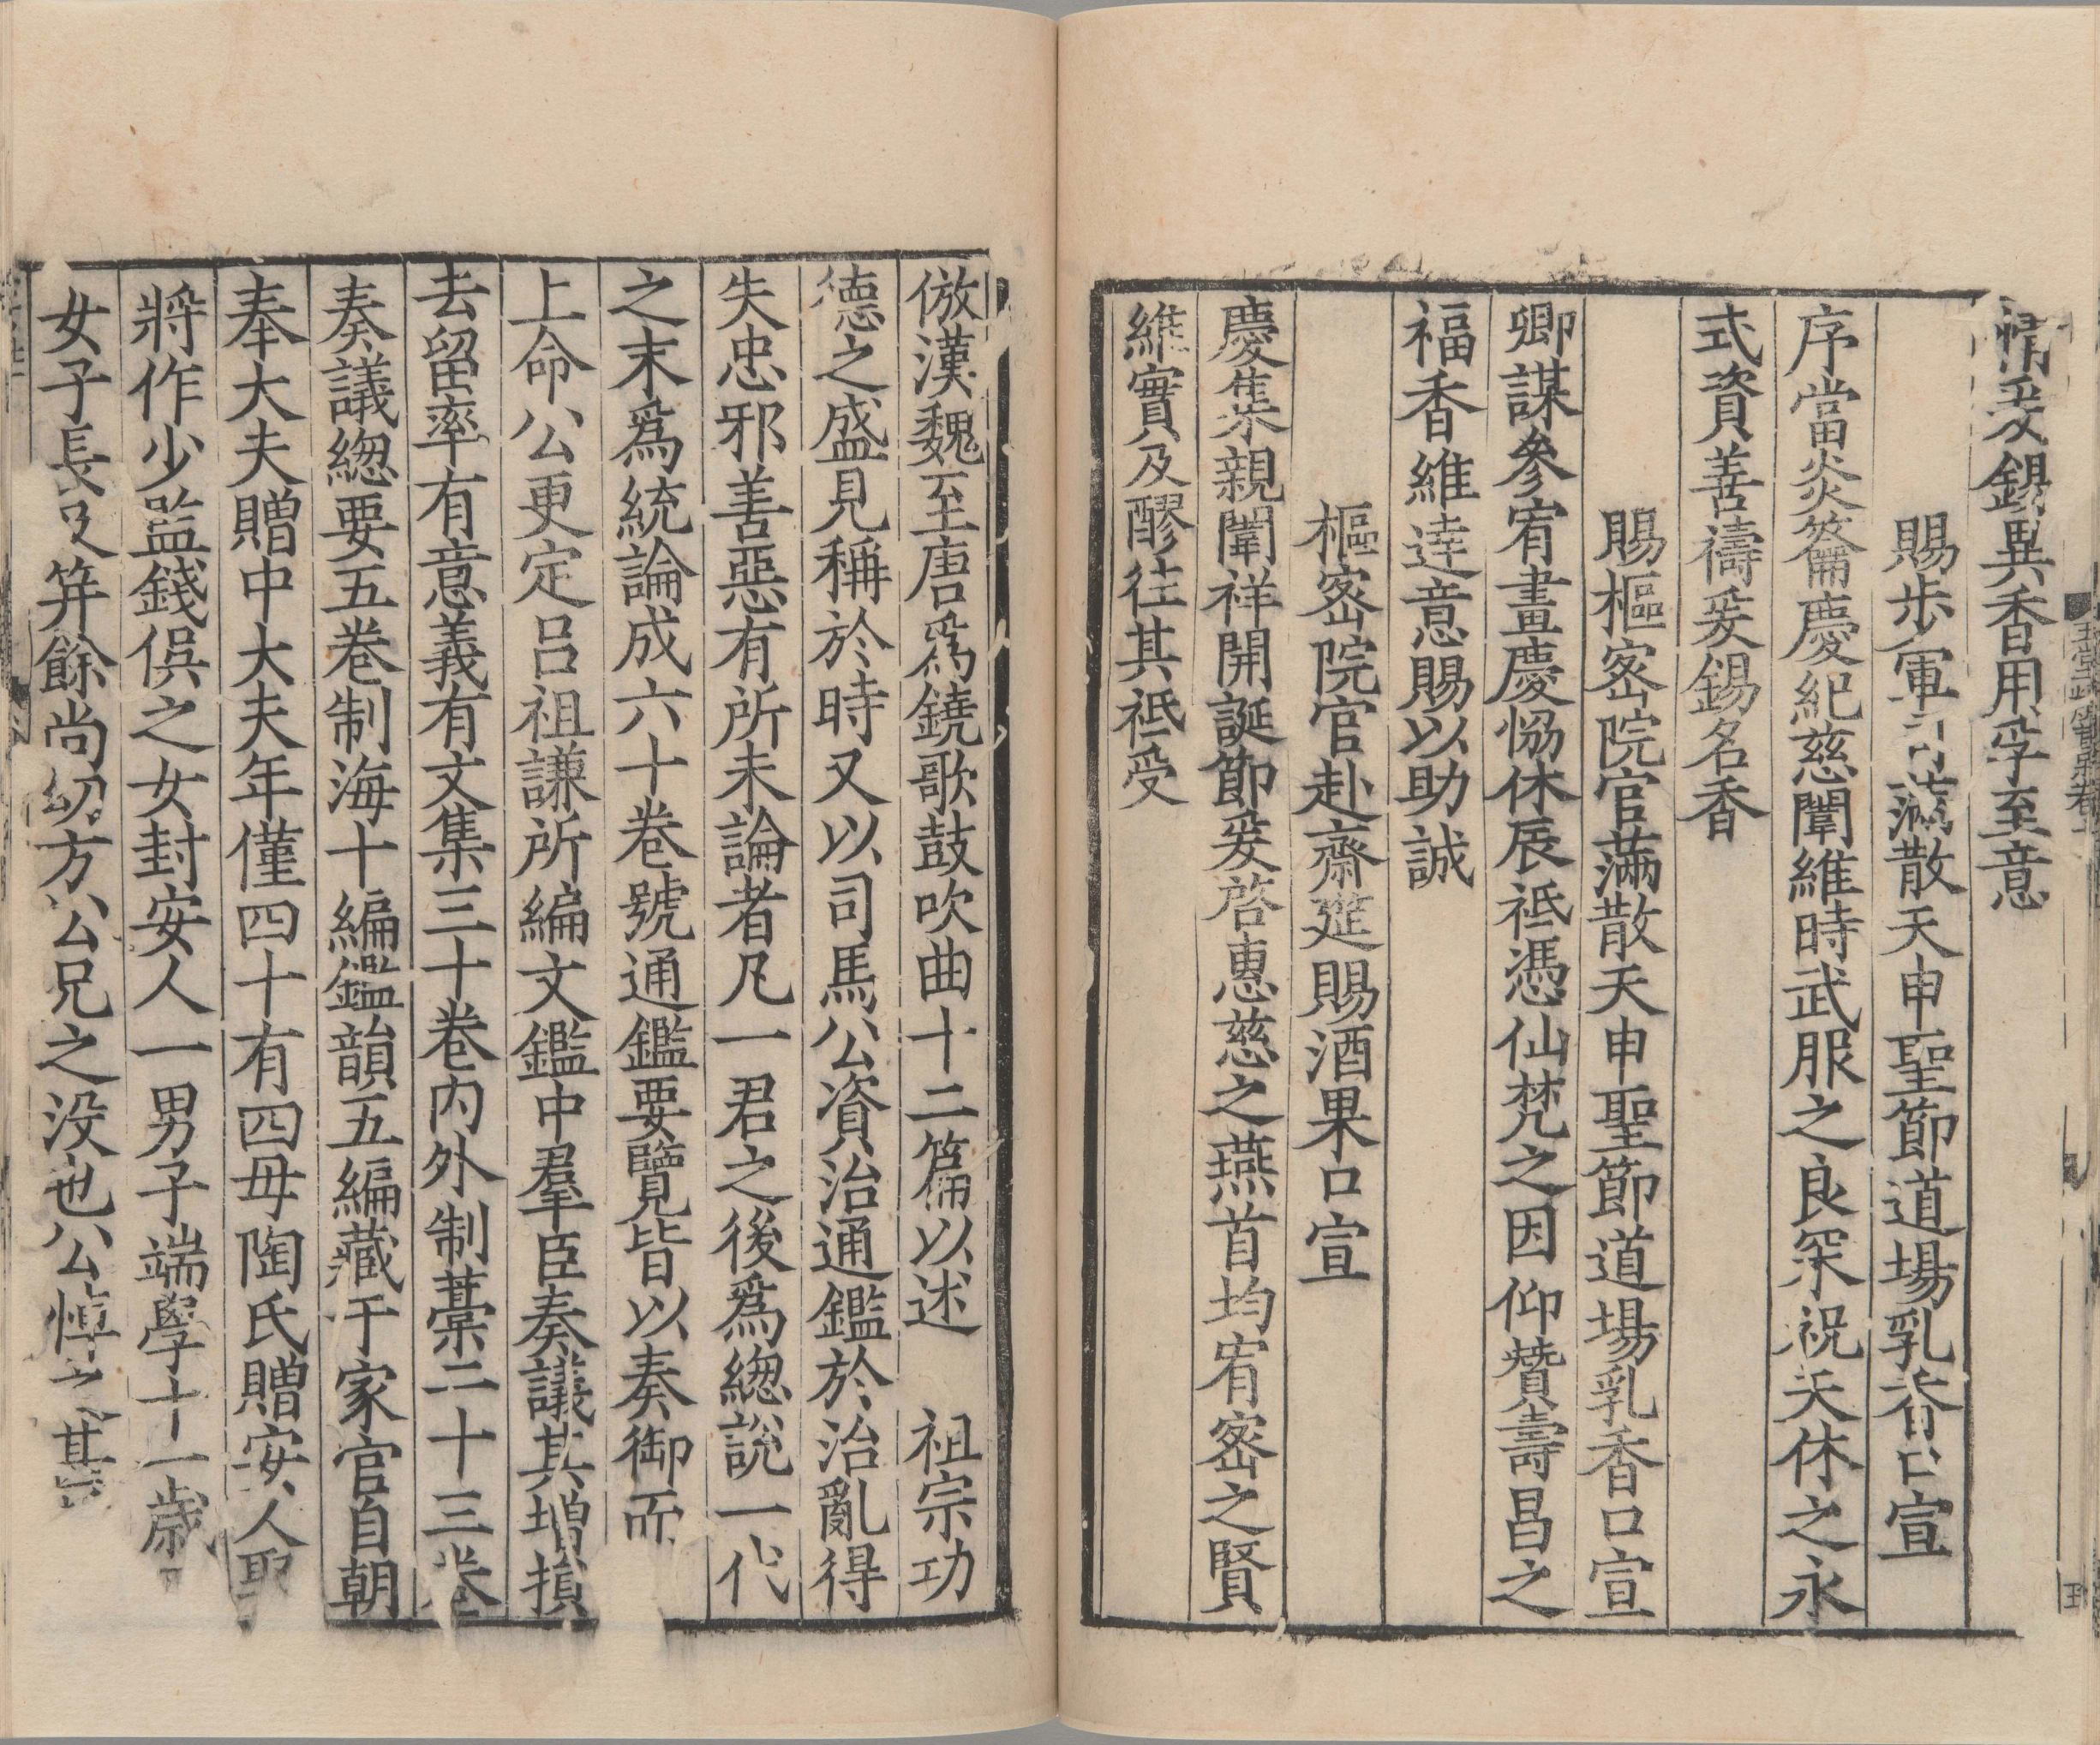 情爰錫異香用孚至意
賜步軍司滿散天申聖節道場乳香口宣
序當炎籥慶紀慈闈維時武服之良罙祝天休之永
式資善禱爰錫名香
賜樞密院官滿散天申聖節道場乳香口宣
卿謀參宥畫慶恊休辰祗憑仙梵之因仰贊壽昌之
福香維達意賜以助誠
樞密院官赴齋筵賜酒果口宣
慶集親闈祥開誕節爰啓惠慈之燕首均宥密之賢
維實及醪往其祗受
倣漢魏至唐爲鐃歌鼓吹曲十二篇以述　祖宗功
德之盛見稱於時又以司馬公資治通鑑於治亂得
失忠邪善惡有所未論者凡一君之後爲緫說一代
之末爲統論成六十卷號通鑑要覽皆以奏御而
上命公更定呂祖謙所編文鑑中羣臣奏議其增損
去留率有意義有文集三十卷內外制藁二十三卷
奏議緫要五卷制海十編鑑韻五編藏于家官自朝
奉大夫贈中大夫年僅四十有四母陶氏贈安人娶
將作少監錢俁之女封安人一男子端學十一歲
女子長及笄餘尚幼方公兄之没也公悼之甚